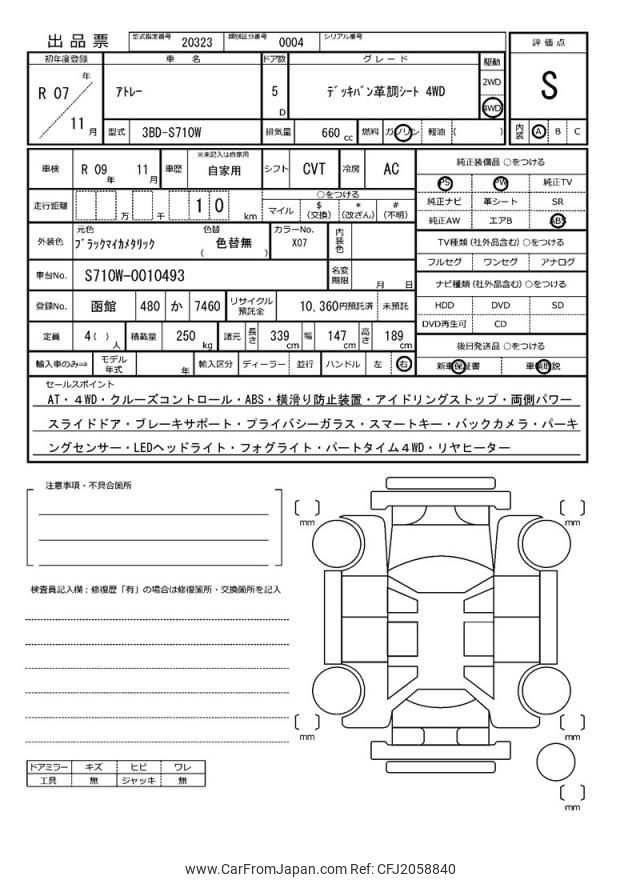 出品票 型式指定番号 20323 類別区分番号 0004 シリアル番号
評価点
S
初年度登録 車名 ドア数 グレード 駆動
R 07 年 11 月 アトレー 5 D デッキバン革調シート 4WD 2WD 4WD
型式 3BD-S710W 排気量 660 cc 燃料 ガソリン 軽油 ( ) 内装 A B C
車検 R 09 年 11 月 車歴 ※未記入は自家用 自家用 シフト CVT 冷房 AC
走行距離 万 千 1 0 km ○をつける
マイル $(交換) *(改ざん) #(不明)
外装色 元色 ブラックマイカメタリック 色替 ( 色替無 ) カラーNo. X07 内装色
車台No. S710W-0010493 名変期限 月 日
登録No. 函館 480 か 7460 リサイクル預託金 10,360円預託済 未預託
定員 4( )人 積載量 250 kg 諸元 長さ 339 cm 幅 147 cm 高さ 189 cm
輸入車のみ⇒ モデル年式 年 輸入区分 ディーラー 並行 ハンドル 左 右
純正装備品 ○をつける
PS PW 純正TV
純正ナビ 革シート SR
純正AW エアB ABS
TV種類 (社外品含む) ○をつける
フルセグ ワンセグ アナログ
ナビ種類 (社外品含む) ○をつける
HDD DVD SD
DVD再生可 CD
後日発送品 ○をつける
新車保証書 車輌取説
セールスポイント
AT・4WD・クルーズコントロール・ABS・横滑り防止装置・アイドリングストップ・両側パワー
スライドドア・ブレーキサポート・プライバシーガラス・スマートキー・バックカメラ・パーキ
ングセンサー・LEDヘッドライト・フォグライト・パートタイム4WD・リヤヒーター
注意事項・不具合箇所
検査員記入欄：修復歴「有」の場合は修復箇所・交換箇所を記入
ドアミラー キズ ヒビ ワレ
工具 無 ジャッキ 無
mm
mm
mm
mm
mm
www.CarFromJapan.com Ref: CFJ2058840